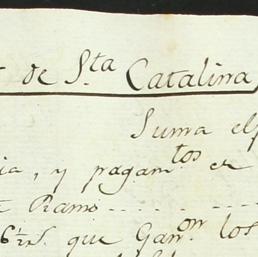 de S.ta Catalina
Suma el
y pagam.tos en
Ramo
6½ rs. que Gan.on los